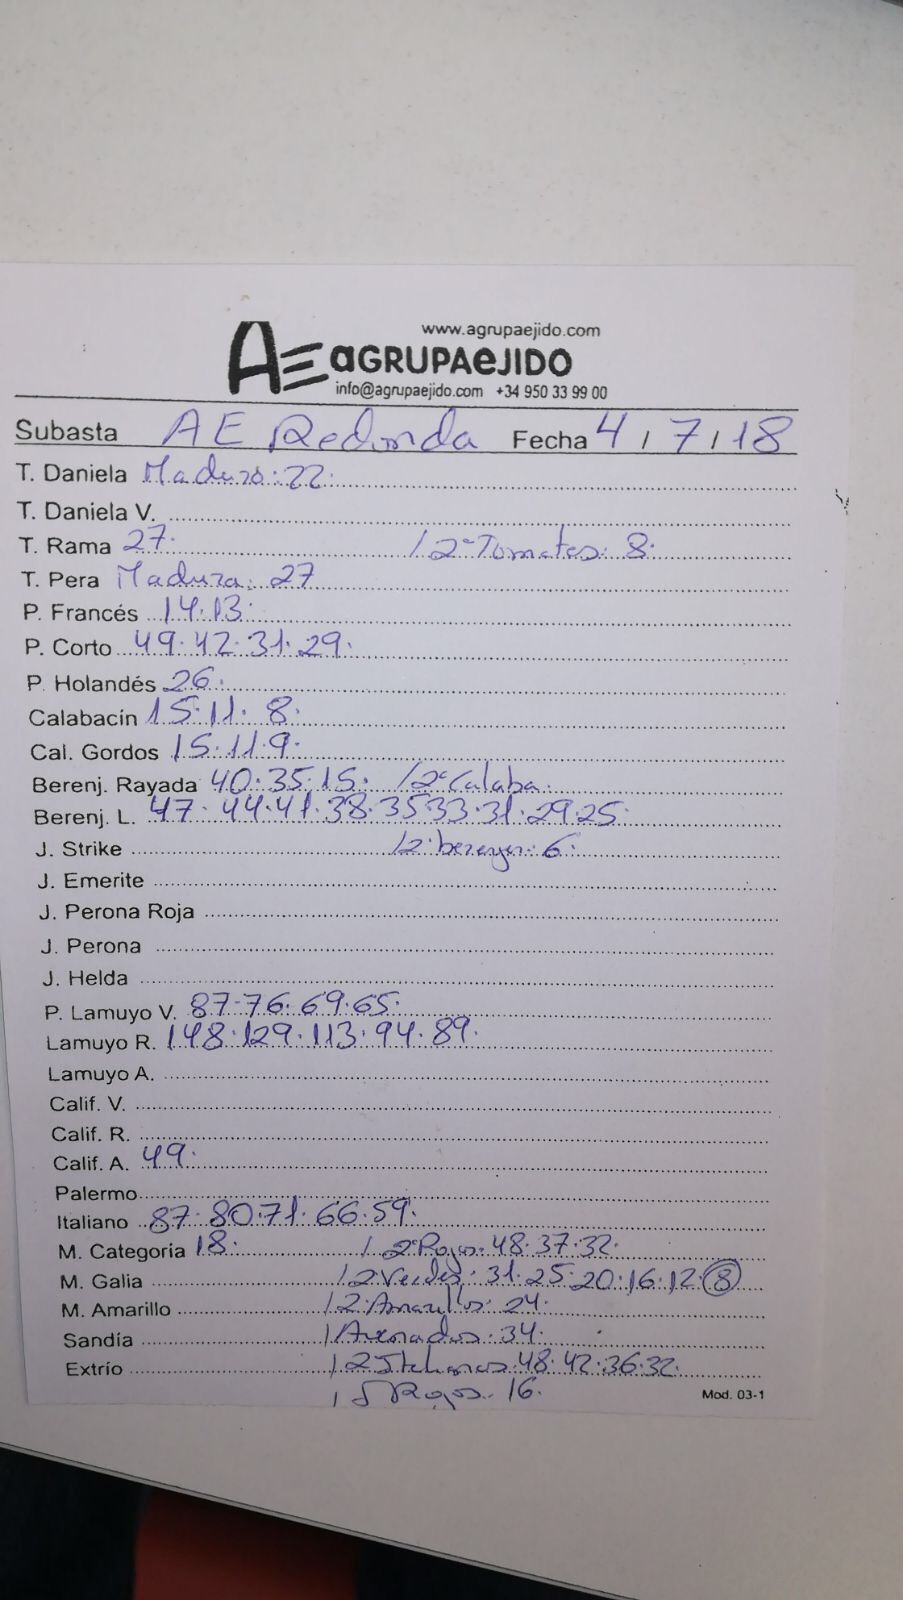 www.agrupaejido.com
AE aGRUPAeJIDO
info@agrupaejido.com +34 950 33 99 00
Subasta AE Redonda Fecha 4 / 7 / 18
T. Daniela Maduro: 22.
T. Daniela V.
T. Rama 27. / 2ª Tomates: 8.
T. Pera Madura: 27
P. Francés 14.13.
P. Corto 49.42.31.29.
P. Holandés 26.
Calabacín 15.11.8.
Cal. Gordos 15.11.9.
Berenj. Rayada 40.35.15. / 2ª Calaba.
Berenj. L. 47.44.41.38.35.33.31.29.25.
J. Strike / 2ª berenjen: 6.
J. Emerite
J. Perona Roja
J. Perona
J. Helda
P. Lamuyo V. 87.76.69.65.
Lamuyo R. 148.129.113.94.89.
Lamuyo A.
Calif. V.
Calif. R.
Calif. A. 49.
Palermo
Italiano 87.80.71.66.59.
M. Categoría 18. / 2ª Rojos: 48.37.32.
M. Galia / 2 Verdes: 31.25.20.16.12.8
M. Amarillo / 2. Amarillos: 24.
Sandía / Asurados: 34.
Extrío / 2 Italianos: 48.42.36.32.
/ Rojos: 16.
Mod. 03-1